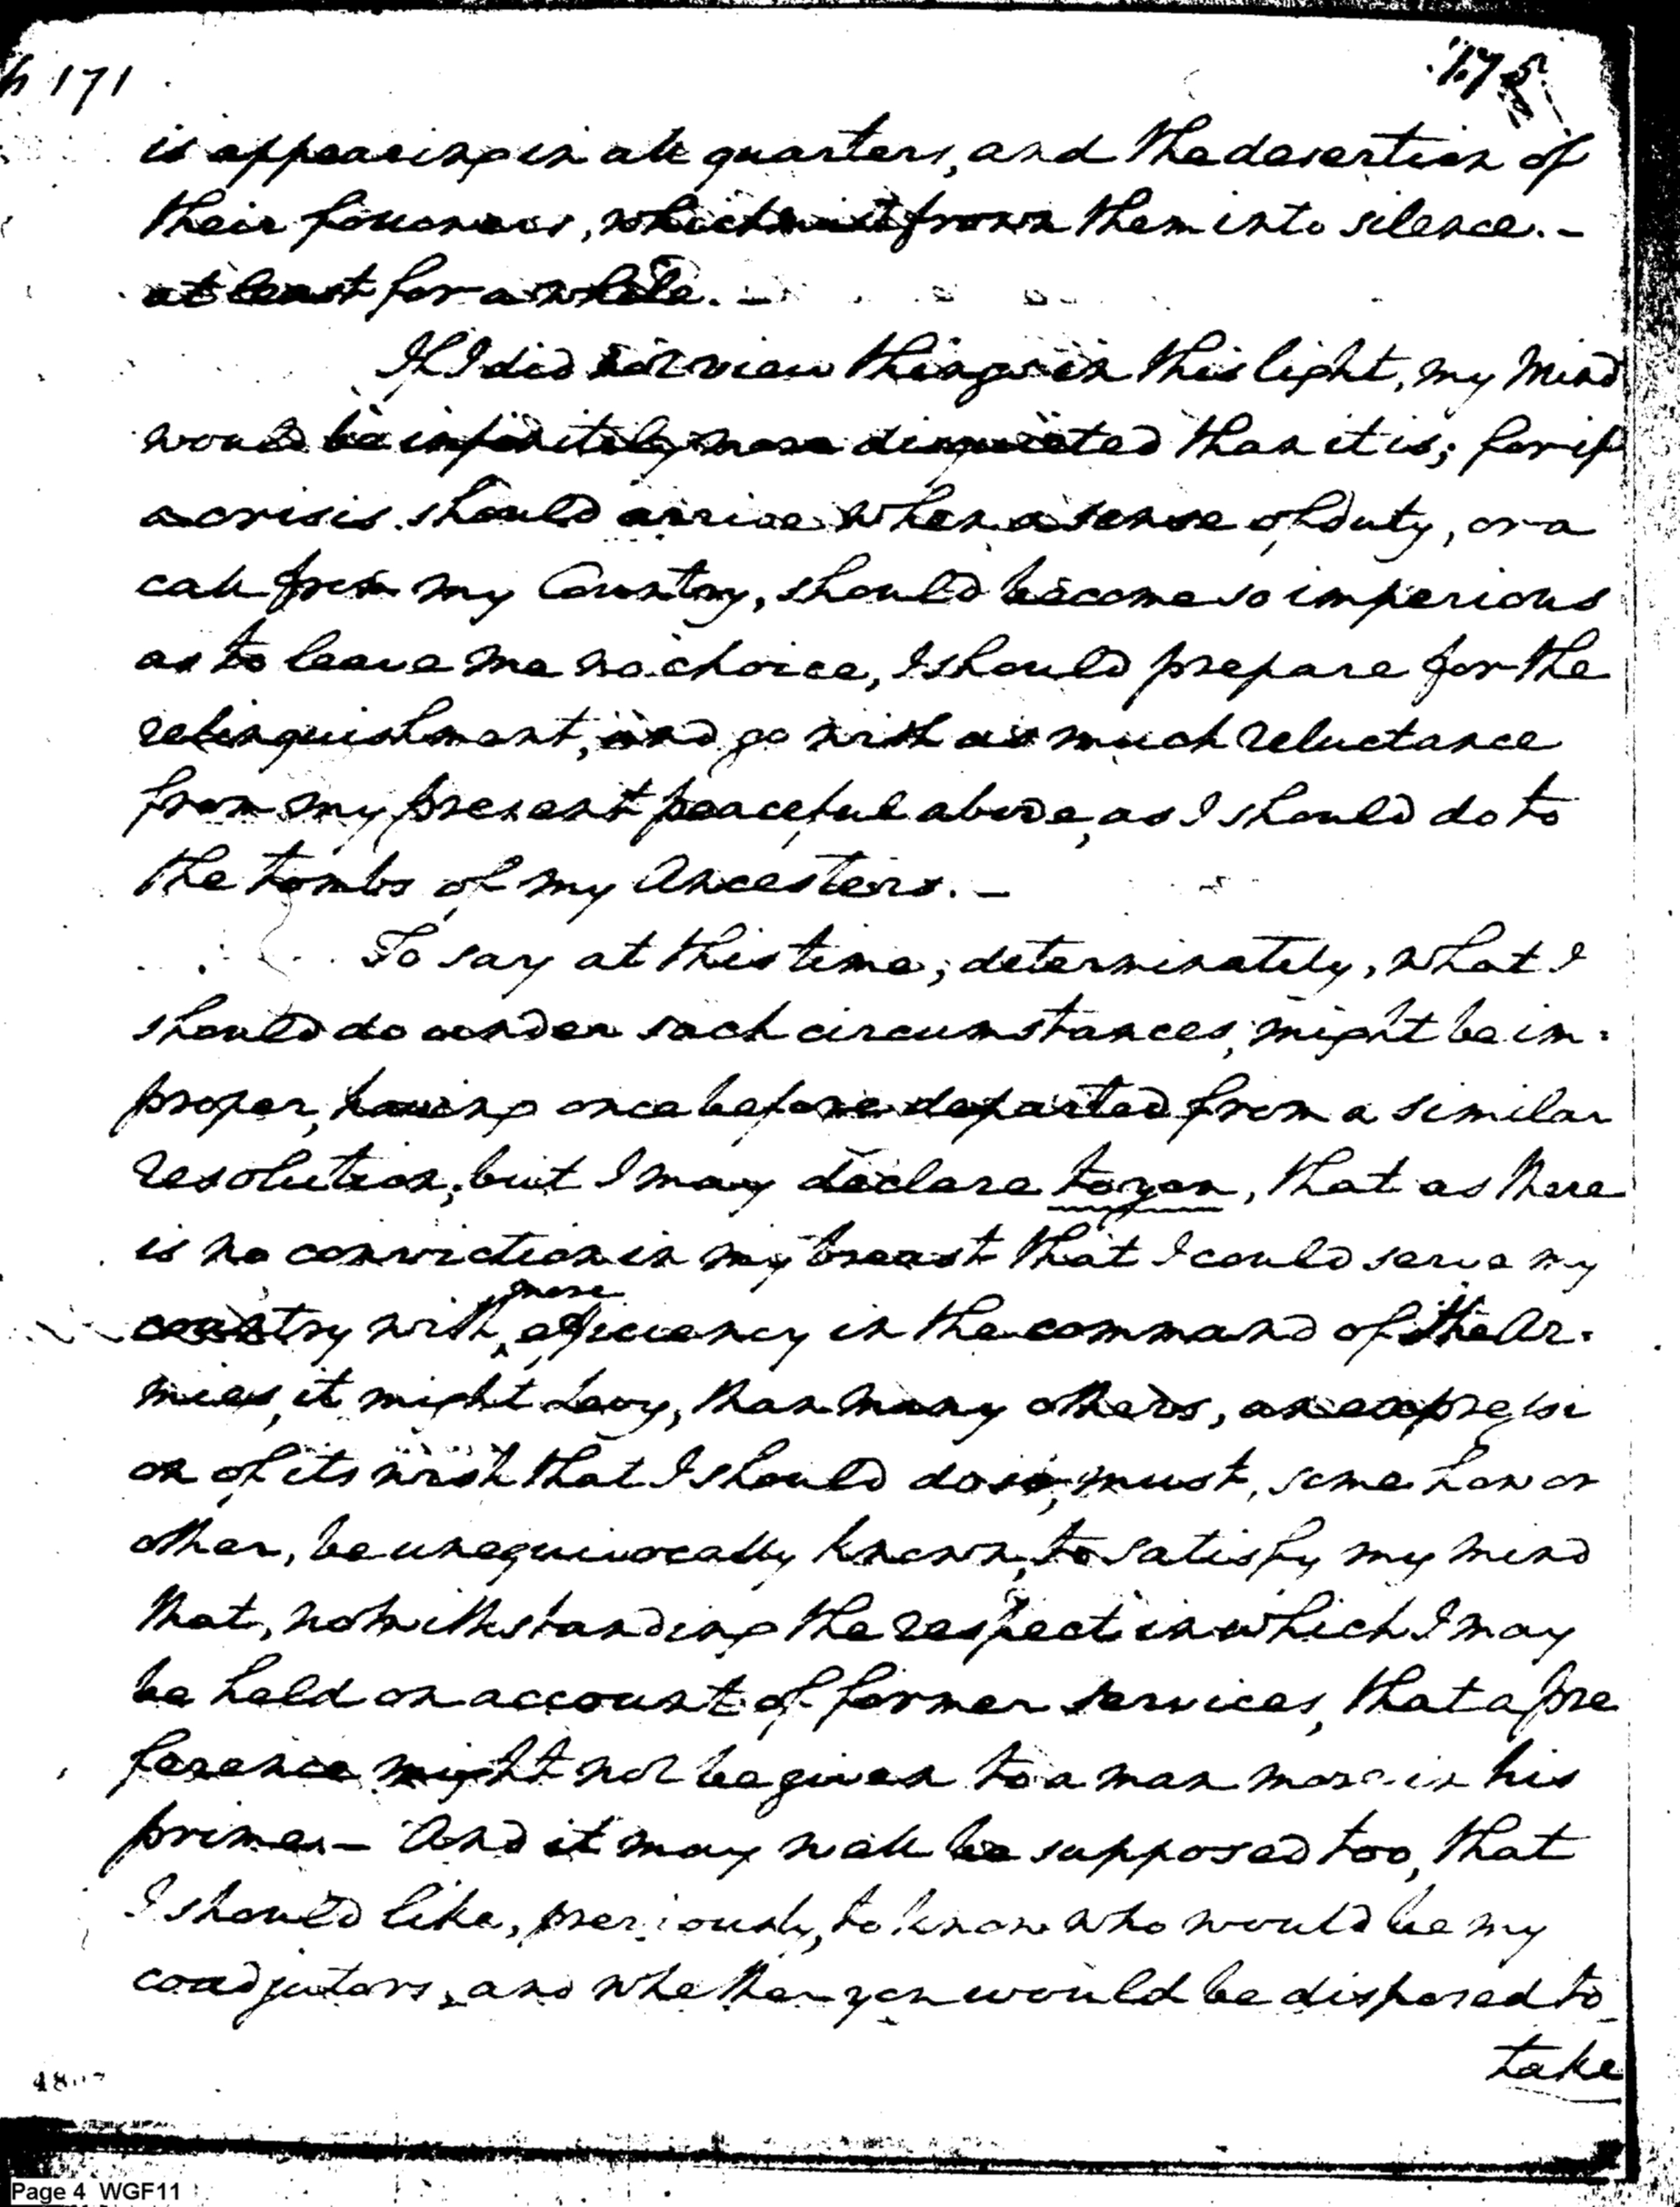 h 171
175
is appearing in all quarters, and the desertion of
their followers, which must frown them into silence.–
at least for a while.–
If I did not view things in this light, my Mind
would be infinitely more disquieted than it is; for if
a crisis should arrive when a sense of duty, or a
call from my Country, should become so imperious
as to leave me no choice, I should prepare for the
relinquishment, and go with as much reluctance
from my present peaceful abode, as I should do to
the tombs of my Ancesters.–
To say at this time, determinately, what I
should do under such circumstances, might be im=
proper, having once before departed from a similar
resolution; but I may declare to you, that as there
is no conviction in my breast that I could serve my
country with more efficiency in the command of the Ar=
mies, it might levy, than many others, an expressi
on of its wish that I should do so, must, some how or
other, be unequivocally known, to satisfy my mind
that, notwithstanding the respect in which I may
be held on account of former services, that a pre
ference might not be given to a man more in his
prime.– And it may well be supposed too, that
I should like, previously, to know who would be my
coadjutors, and whether you would be disposed to
take
Page 4 WGF11